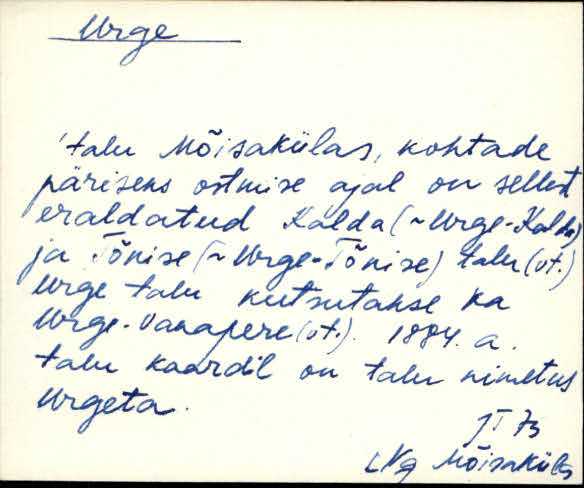 Urge
'talu Mõisakülas, kohtade
päriseks ostmise ajal on sellest
eraldatud Kalda (~Urge-Kalda)
ja Tõnise (~ Urge-Tõnise) talu (vt.)
Urge talu kutsutakse ka
Urge-Vanapere (vt.). 1884. a.
talu kaardil on talu nimetus
Urgeta.
JT 73
LNg Mõisaküla